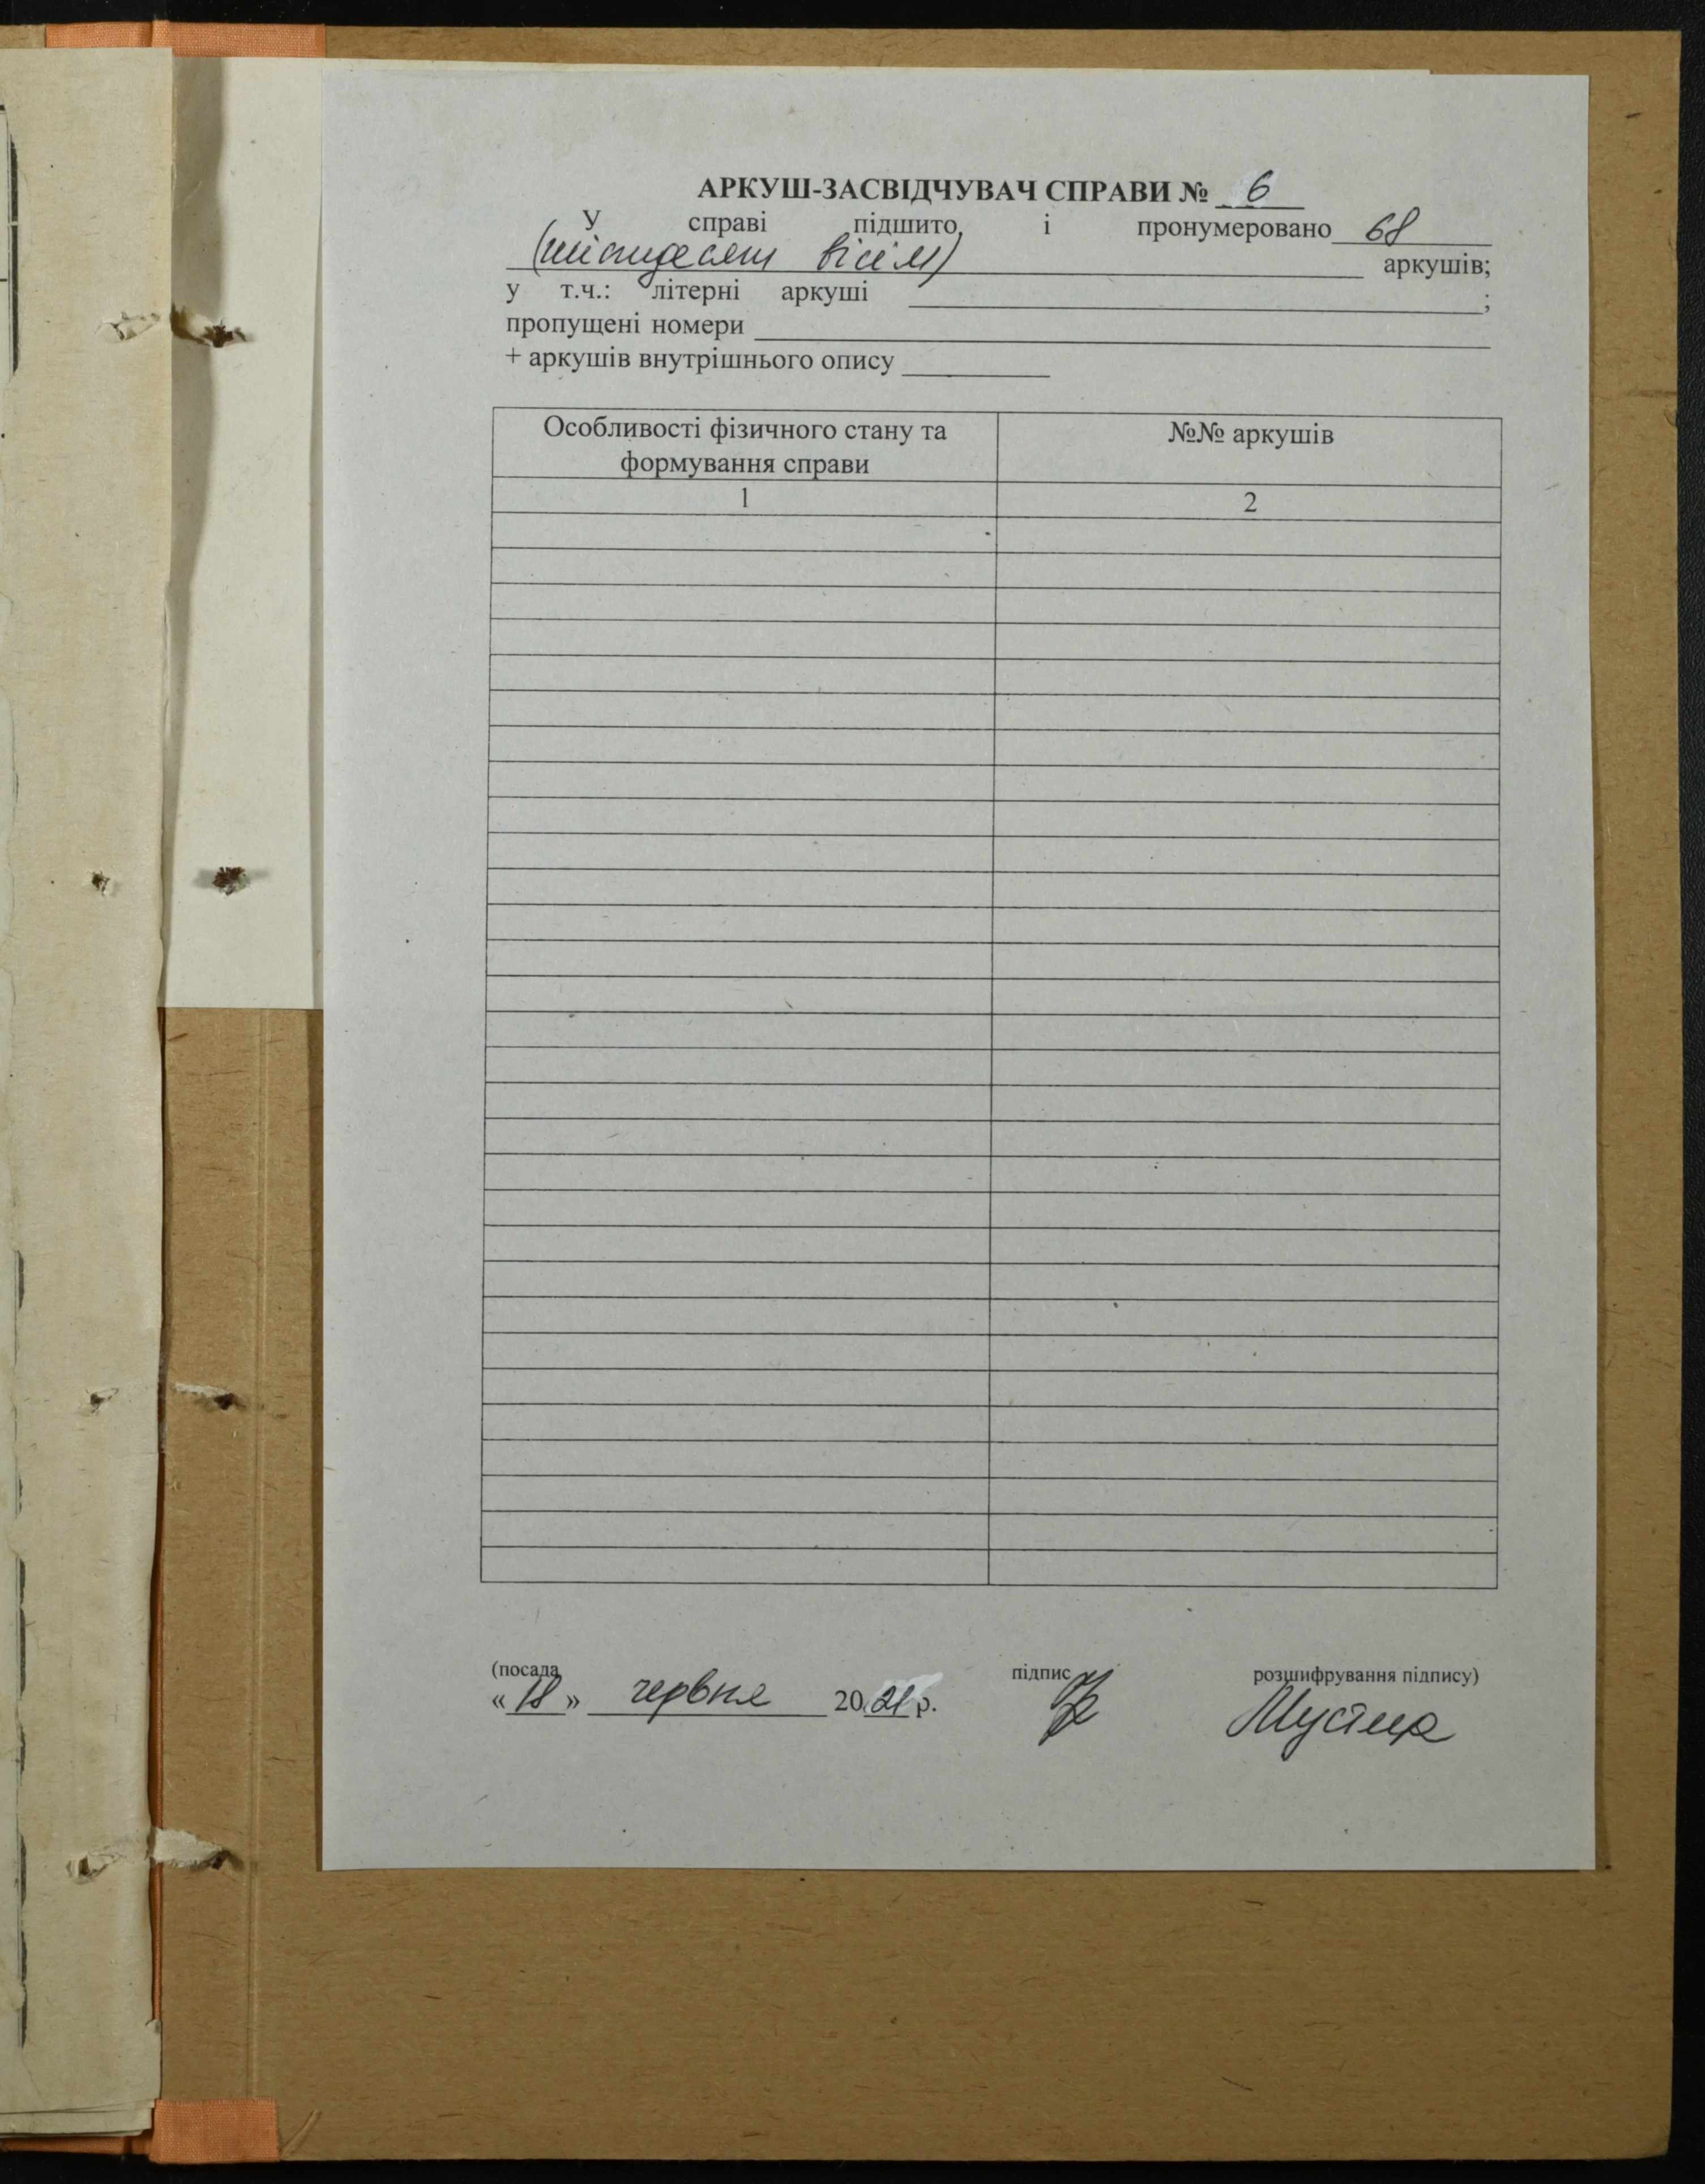 АРКУШ-ЗАСВІДЧУВАЧ СПРАВИ № 6
У справі підшито і пронумеровано 68
(шістдесят вісім) аркушів;
у т.ч.: літерні аркуші ;
пропущені номери
+ аркушів внутрішнього опису
Особливості фізичного стану та №№ аркушів
формування справи
1 2
(посада підпис розшифрування підпису)
« 18 » червня 2021 р.